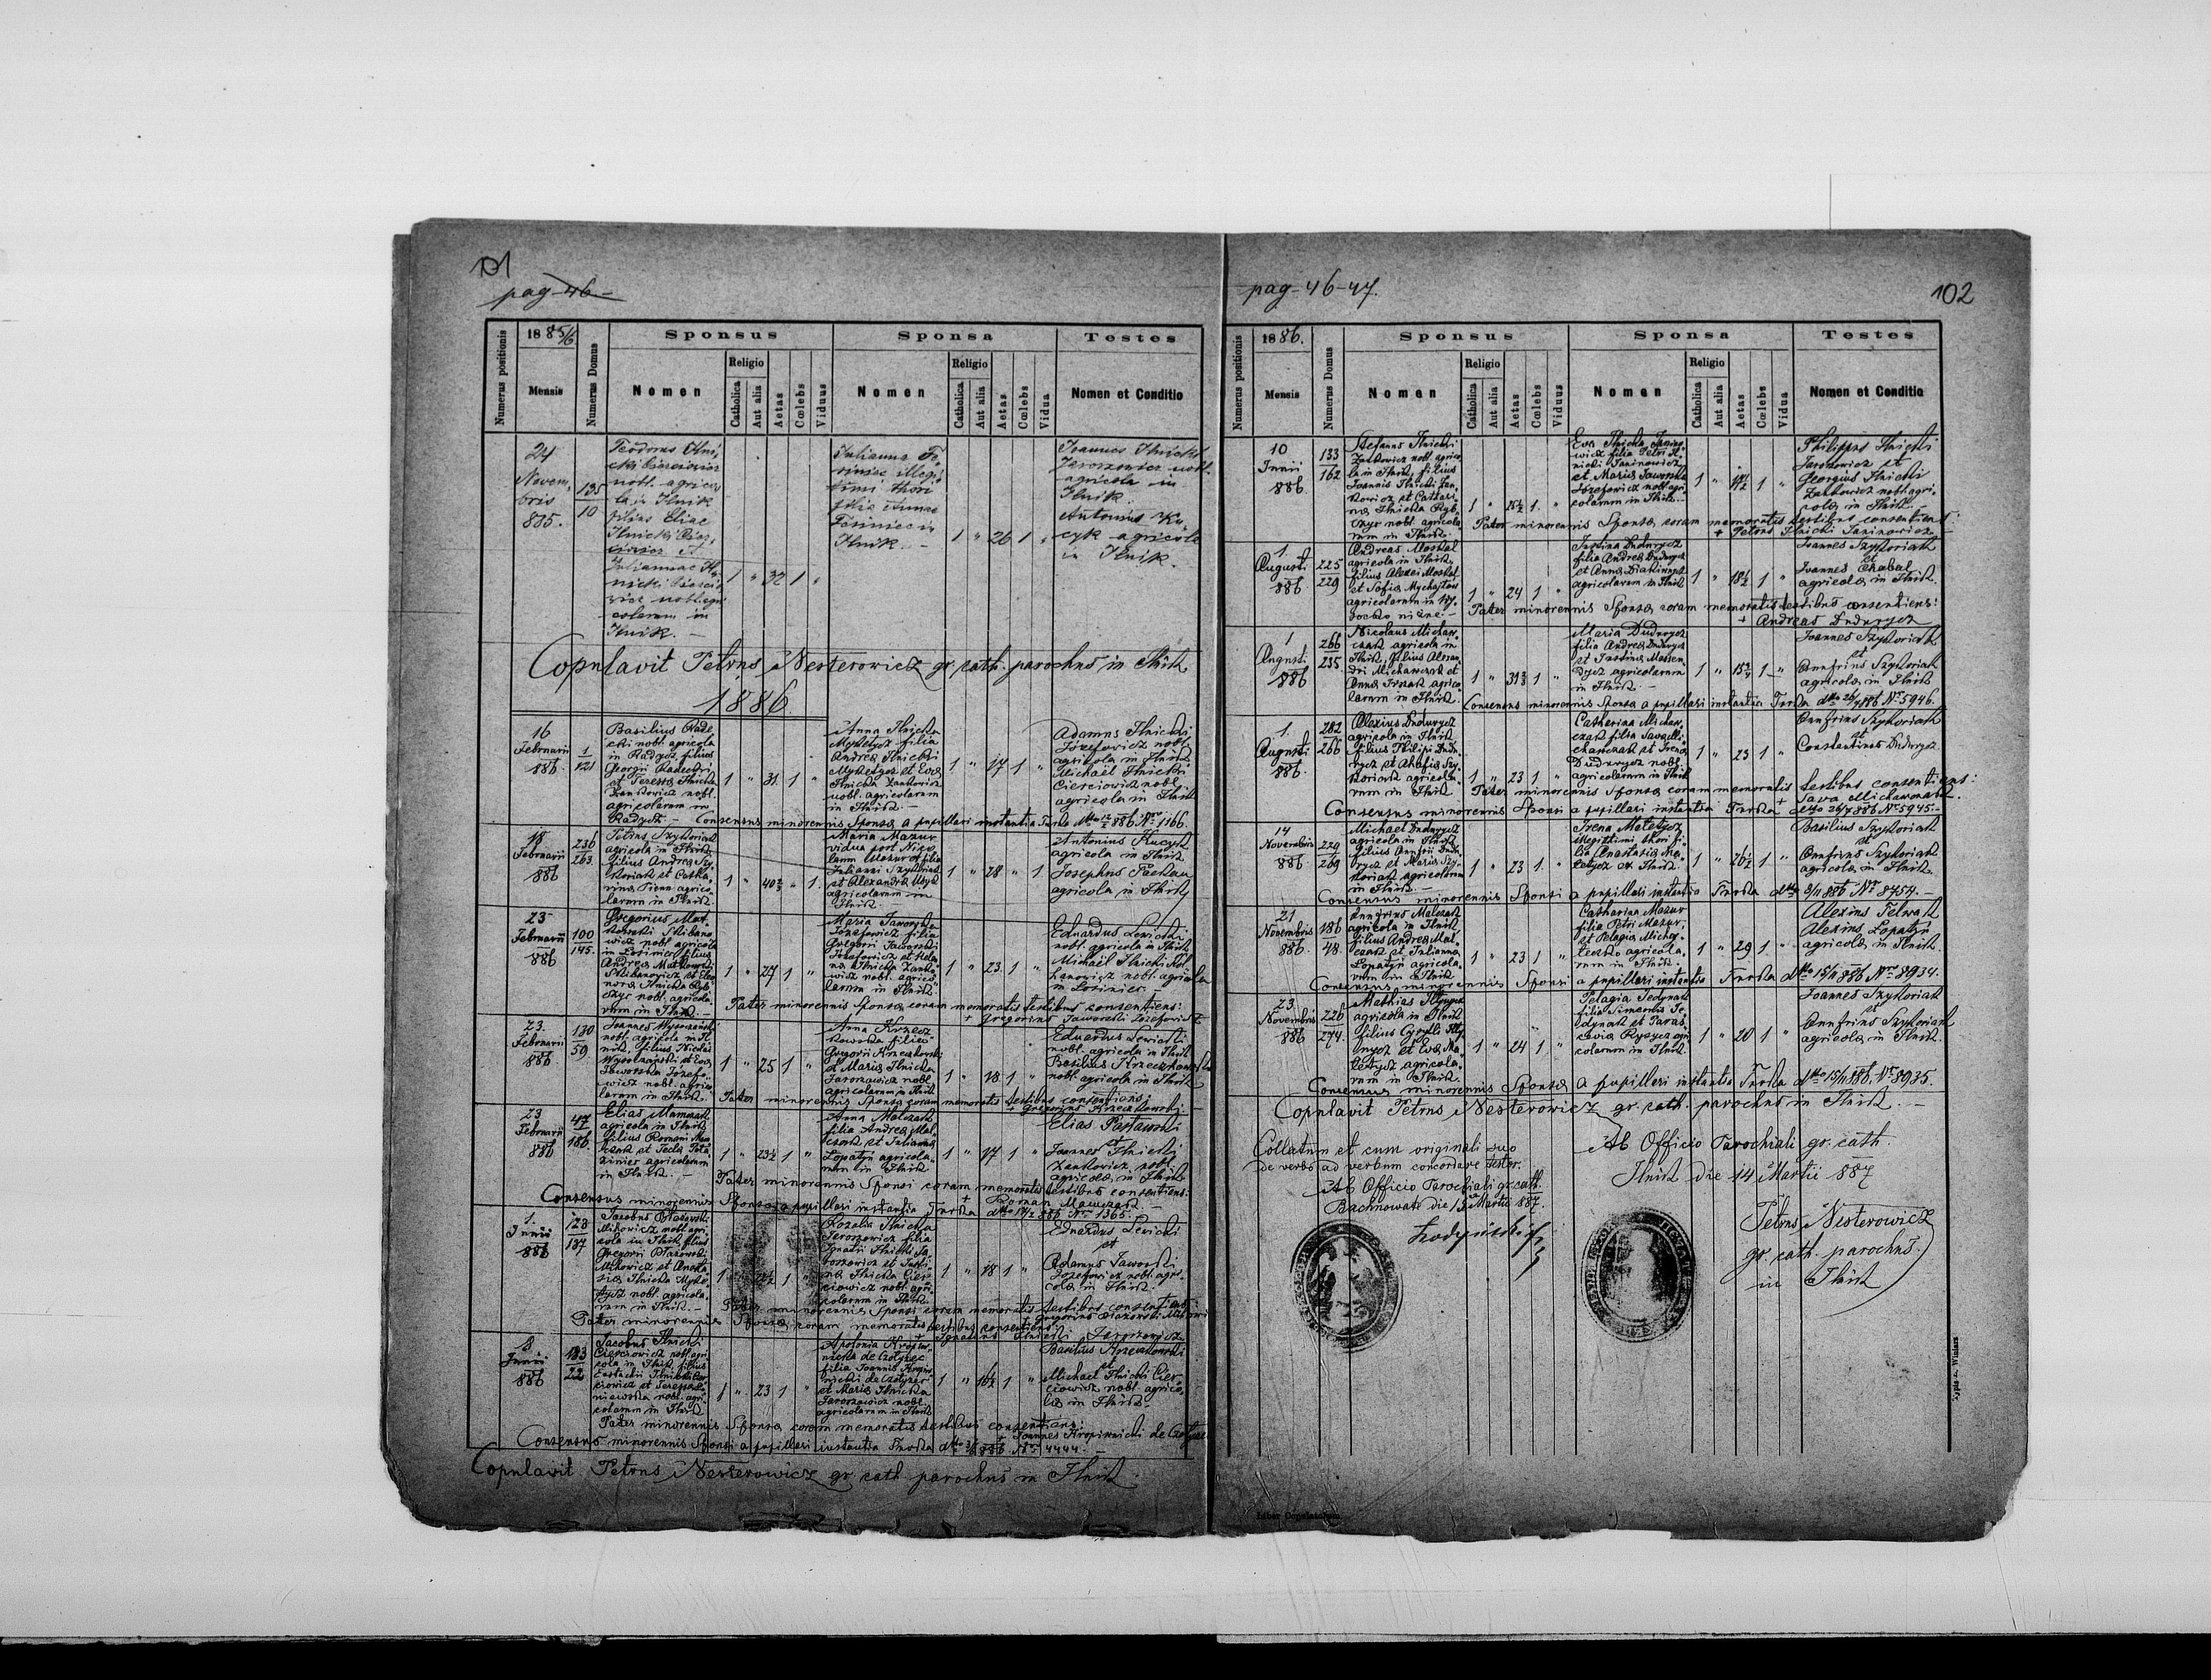 101
pag-46-
Numerus positionis
1885/6
Mensis
Numerus Domus
Sponsus
Nomen
Religio
Catholica
Aut alia
Aetas
Cœlebs
Viduus
Sponsa
Nomen
Religio
Catholica
Aut alia
Aetas
Cœlebs
Vidua
Testes
Nomen et Conditio
24
Novem,
bris
885.
135
10
Teodorus Ilni,
cki
nobl. agrico
la in Ilnik
filius Eliae
Ilnicki
et
Iuliannae Il,
nicki
nobl. agri
colarum in
Ilnik. —
1 " 32 1 "
Iulianna
illegi
timi thori
filia Annae
in
Ilnik. —
1 " 26 1 "
Ioannes Ilnicki
Jaroszowicz nobl.
agricola in
Ilnik.
Antonius Ku
cyk agricola
in Ilnik.
Copulavit Petrus Nesterowicz gr. cath. parochus in Ilnik
1886.
16
Februarii
886.
1
121
Basilius Rade
cki nobl. agricola
in Radycz, filius
Georgii Radecki
et Teressa Ilnicka
Zankowicz nobl.
agricolarum in
Radycz. —
1 " 31 1 "
Anna Ilnicka
Mykytycz filia
Andrea Ilnicki
Mykytycz et Eva
Ilnicka Zankowicz
nobl. agricolarum
in Ilnik. —
1 " 17 1 "
Adamus Ilnicki
Józefowicz nobl.
agricola in Ilnik
Michael Ilnicki
Cierciowicz nobl.
agricola in Ilnik
Consensus minorennis Sponsa a pupillari instantia Turka 886 No 1166.
18
Februarii
886
236
263.
Petrus Szykoriak
agricola in Ilnik
filius Andrea Szy,
koriak et Catha,
rina agrico
larum in Ilnik.
1 " 40 " 1.
Maria Mazur
vidua post Nico,
laum Mazur filia
Julianni Szykoriak
et Alexandra
agricolarum in
Ilnik.
1 " 28 " 1
Antonius Kucyk
agricola in Ilnik
Josephus
agricola in Ilnik
23
Februarii
886
100
145.
Gregorius Mat,
kowski Skibano
wicz nobl. agricola
in Łosiniec filius
Andrea Matkowski
Skibanowicz et Eleo
nora Ilnicka Ryb
czycz nobl. agricola,
rum in Ilnik. —
1 " 27 1 "
Maria Jaworska
Józefowicz filia
Gregorii Jaworski
Józefowicz et Hele
na Ilnicka Zanko
wicz nobl. agrico
larum in Ilnik
1 " 23. 1 "
Eduardus Lewicki
nobl. agricola in Ilnik
Michael Ilnicki
nobl. agricola
in Łosiniec. —
Pater minorennis Sponsa coram memoratis testibus consentiens:
+ Gregorius Jaworski Józefowicz
23.
Februarii
886
130
59
Joannes Wysoczański
nobl. agricola in Il
nik, filius Nicolai
Wysoczański et Eva
Jaworska Józefo
wicz nobl. agrico
larum in Ilnik.
1 " 25 1 "
Anna Krzecz
kowska filia
Gregorii Krzeczkowski
et Maria Ilnicka
Jaroszowicz nobl.
agricolarum in Ilnik
1 " 18 1 "
Eduardus Lewicki
nobl. agricola in Ilnik
Basilius Krzeczkowski
nobl. agricola in Ilnik
Pater minorennis Sponsa coram memoratis testibus consentiens:
+ Gregorius Krzeczkowski —
23
Februarii
886
47
186.
Elias Mamczak
agricola in Ilnik
filius Romani Mam
czak et Tecla
agricolarum
in Ilnik. —
1 " 23½ 1 "
Anna Malczak
filia Andrea Mal,
czak et Julianna
Lopatyn agricola,
rum in Ilnik
1 " 17 1 "
Elias
et
Joannes Ilnicki
Zankowicz nobl.
agricola in Ilnik
Pater minorennis Sponsi coram memoratis testibus consentiens:
+ Roman Mamczak —
Consensus minorennis Sponsa a pupillari instantia Turka 886 No 1365.
1.
Junii
886
123
137
Jacobus Błażowski
Mikowicz nobl. agri,
cola in Ilnik filius
Gregorii Błażowski
Mikowicz et Anasta
sia Ilnicka Myky
tycz nobl. agricola,
rum in Ilnik. —
1 " 1 "
Rozalia Ilnicka
Jaroszowicz filia
Ignatii Ilnicki Ja,
roszowicz et Justi
na Ilnicka Cier
ciowicz nobl. agri
colarum in Ilnik.
1 " 18 1 "
Eduardus Lewicki
et
Adamus Jaworski
Józefowicz nobl. agri,
cola in Ilnik.
Pater minorennis Sponsi coram memoratis testibus consentiens:
+ Gregorius Błażowski
Pater minorennis Sponsa coram memoratis testibus consentiens:
+ Ignatius Ilnicki Jaroszowicz
8
Junii
886
183
22
Jacobus Ilnicki
Cierciowicz nobl. agri
cola in Ilnik, filius
Eustachii Ilnicki Cier
ciowicz et Teressa
nobl. agri
colarum in Ilnik.
1 " 23 1 "
Apolonia Kropiw
nicka de Czołycz
filia Joannis Kropiw
nicki de Czołycz
et Maria Ilnicka
Jaroszowicz nobl.
agricolarum in Ilnik
1 " 16½ 1 "
Basilius Krzeczkowski
et
Michael Ilnicki Cier
ciowicz nobl. agrico,
la in Ilnik.
Pater minorennis Sponsa coram memoratis testibus consentiens:
+ Joannes Kropiwnicki de Czołycz
Consensus minorennis Sponsi a pupillari instantia Turka 886 No 4444. —
Copulavit Petrus Nesterowicz gr. cath. parochus in Ilnik.
pag-46-47.
102
Numerus positionis
1886.
Mensis
Numerus Domus
Sponsus
Nomen
Religio
Catholica
Aut alia
Aetas
Cœlebs
Viduus
Sponsa
Nomen
Religio
Catholica
Aut alia
Aetas
Cœlebs
Vidua
Testes
Nomen et Conditio
10
Junii
886
133
162
Stefanus Ilnicki
Zankowicz nobl. agrico,
la in Ilnik, filius
Joannis Ilnicki Zan,
kowicz et Cathari
na Ilnicka Ryb
czycz nobl. agricola,
rum in Ilnik.
1 " 25½ 1. "
Eva Ilnicka Janino
wicz filia Petri Il
nicki Janinowicz
et Maria Jaworska
Józefowicz nobl. agri
colarum in Ilnik. —
1 " 17½ 1 "
Philippus Ilnicki
Jaroszowicz et
Georgius Ilnicki
Zankowicz nobl. agri,
cola in Ilnik.
Pater minorennis Sponsa coram memoratis testibus consentiens:
+ Petrus Ilnicki Janinowicz —
1.
Augusti
886
225
229
Andreas Moskal
agricola in Ilnik,
filius Alexei Moskal
et Sofia
agricolarum in Wy,
nizne. —
1 " 24 1 "
Justina Dudurycz
filia Andrea Dudurycz
et Anna
agricolarum in Ilnik
1 " 18½ 1 "
Joannes Szykoriak
et
Joannes Chabal
agricola in Ilnik.
Pater minorennis Sponsa coram memoratis testibus consentiens:
+ Andreas Dudurycz
1
Augusti
886
266
235.
Nicolaus Michaw,
czak agricola in
Ilnik, filius Alexan
dri Michawczak et
Anna agrico
larum in Ilnik.
1 " 1 "
Maria Dudurycz
filia Andrea Dudurycz
et Justina
agricolarum
in Ilnik. —
1 " 1 "
Joannes Szykoriak
et
Onufrius Szykoriak
agricola in Ilnik.
Consensus minorennis Sponsa a pupillari instantia Turka dtto 26/7 886 No 5946.
1.
Augusti
886
282
266
Alexius Dudurycz
agricola in Ilnik
filius Philipi Dudu,
rycz et Ahafia Szy,
koriak agricola,
rum in Ilnik.
1 " 23 1 "
Catharina Michaw,
czak filia Sawa Mi
chawczak et Irena
Dudurycz nobl.
agricolarum in Ilnik
1 " 23 1 "
Onufrius Szykoriak
et
Constantinus Dudurycz
Pater minorennis Sponsa coram memoratis testibus consentiens:
+ Sawa Michawczak.
Consensus minorennis Sponsi a pupillari instantia Turka dtto 26/7 886 No 5945. —
14
Novembris
886
229
269
Michael Dudurycz
agricola in Ilnik
filius Onufrii Dudu
rycz et Maria Szy,
koriak agricolarum
in Ilnik. —
1 " 23 1. "
Irena Maletycz
illegitimi thori fi
lia Anastasia Ma
letycz ex Ilnik.
1 " 26½ 1 "
Basilius Szykoriak
et
Onufrius Szykoriak
agricola in Ilnik.
Consensus minorennis Sponsi a pupillari instantia Turka dtto 3/11 886 No 8454. —
21
Novembris
886
186
48.
Onufrius Malczak
agricola in Ilnik
filius Andrea Mal,
czak et Julianna
Lopatyn agricola,
rum in Ilnik
1 " 23 1 "
Catharina Mazur
filia Petri Mazur,
et Pelagia
agricola,
rum in Ilnik.
1 " 29 1 "
Alexius Felwak
Alexius Lopatyn
agricola in Ilnik.
Consensus minorennis Sponsi a pupillari instantia Turka dtto 15/11 886 No 8934.
23.
Novembris
886
226
274.
Mathias
agricola in Ilnik
filius Cyrylli
et Eva Ma
letycz agricola,
rum in Ilnik.
1 " 24 1 "
Pelagia Fedynak
filia Simeonis Fe
dynak et Paras
cevia agri
colarum in Ilnik.
1 " 20 1 "
Joannes Szykoriak
et
Onufrius Szykoriak
agricola in Ilnik.
Consensus minorennis Sponsa a pupillari instantia Turka dtto 15/11 886, No 8935.
Copulavit Petrus Nesterowicz gr. cath. parochus in Ilnik. —
Collatum et cum originali suo
de verbo ad verbum concordare testor.
Ab Officio Parochiali gr. cath.
Bachnowate die 15 Martii 887.
Ab Officio Parochiali gr. cath.
Ilnik die 14 Martii 887
Petrus Nesterowicz
gr. cath. parochus
in Ilnik
Liber Copulatorum.